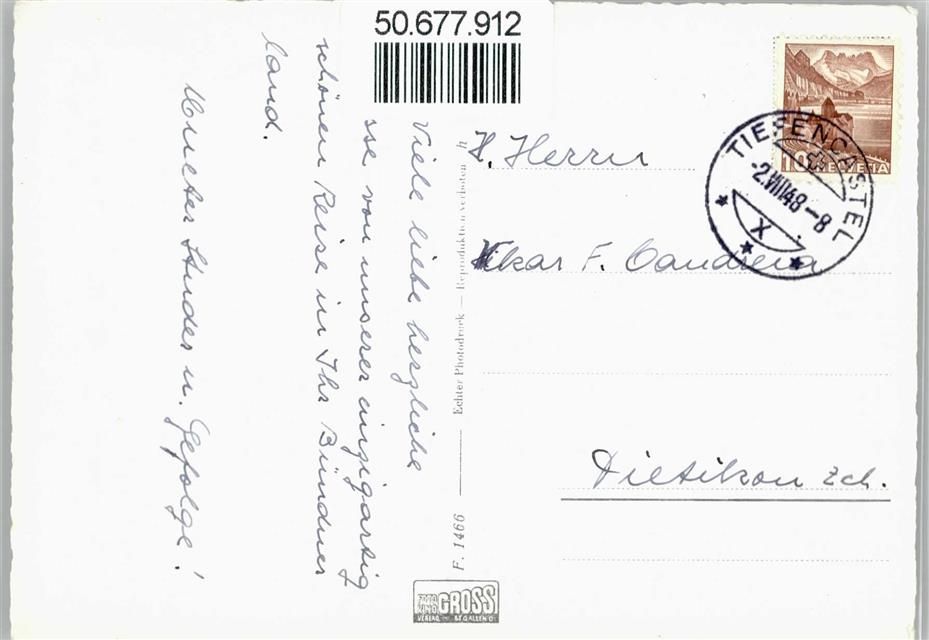 50.677.912
Viele liebe herzliche
sse von unserer einzigartig
schönen Reise in Ihr Bündner
land.
u. Gefolge!
Herrn
F. Candreia
Dietikon Zch.
HELVETIA
TIEFENCASTEL
-2.VIII48-8
X
F. 1466
Echter Photodruck — Reproduktion verboten
FOTO UND GROSS
VERLAG ST GALLEN O